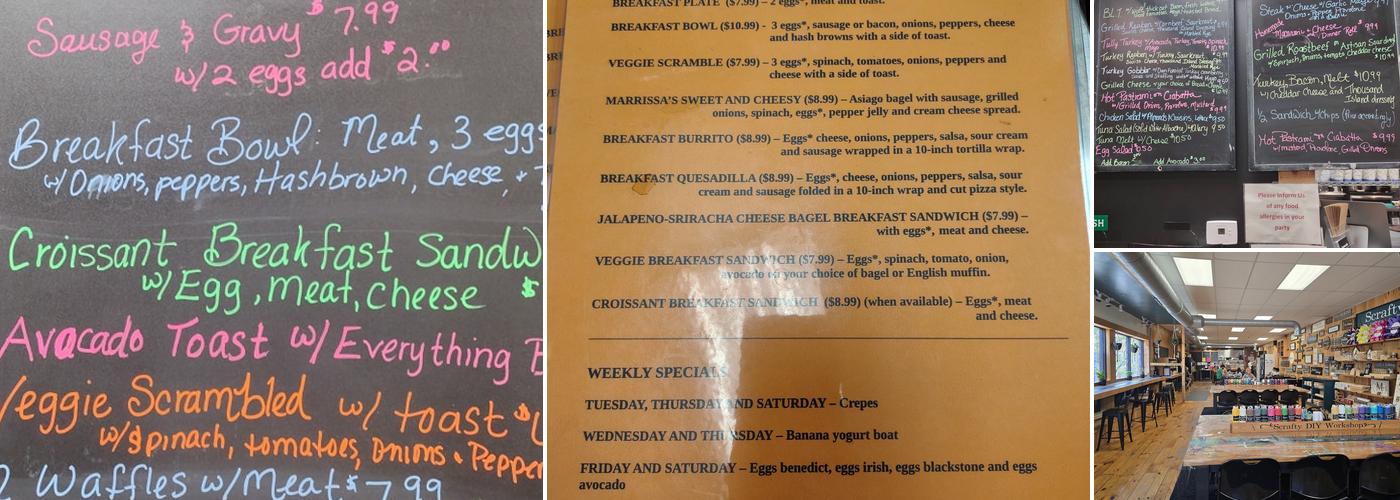 Sausage & Gravy $7.99
w/2 eggs add $2.00
Breakfast Bowl: Meat, 3 eggs
w/Onions, peppers, Hashbrown, cheese, +
Croissant Breakfast Sandw
w/Egg, Meat, Cheese $
Avocado Toast w/Everything
Veggie Scrambled w/ toast
w/Spinach, tomatoes, Onions, Pepper
Waffles w/Meat $7.99
BREAKFAST PLATE ($7.99) – 2 eggs*, meat and toast.
BREAKFAST BOWL ($10.99) - 3 eggs*, sausage or bacon, onions, peppers, cheese
and hash browns with a side of toast.
VEGGIE SCRAMBLE ($7.99) – 3 eggs*, spinach, tomatoes, onions, peppers and
cheese with a side of toast.
MARRISSA'S SWEET AND CHEESY ($8.99) – Asiago bagel with sausage, grilled
onions, spinach, eggs*, pepper jelly and cream cheese spread.
BREAKFAST BURRITO ($8.99) – Eggs* cheese, onions, peppers, salsa, sour cream
and sausage wrapped in a 10-inch tortilla wrap.
BREAKFAST QUESADILLA ($8.99) – Eggs*, cheese, onions, peppers, salsa, sour
cream and sausage folded in a 10-inch wrap and cut pizza style.
JALAPENO-SRIRACHA CHEESE BAGEL BREAKFAST SANDWICH ($7.99) –
with eggs*, meat and cheese.
VEGGIE BREAKFAST SANDWICH ($7.99) – Eggs*, spinach, tomato, onion,
avocado on your choice of bagel or English muffin.
CROISSANT BREAKFAST SANDWICH ($8.99) (when available) – Eggs*, meat
and cheese.
WEEKLY SPECIALS
TUESDAY, THURSDAY AND SATURDAY – Crepes
WEDNESDAY AND THURSDAY – Banana yogurt boat
FRIDAY AND SATURDAY – Eggs benedict, eggs irish, eggs blackstone and eggs
avocado
BLT
Grilled Reuben
Tully Turkey
Turkey Reuben
Turkey Gobbler
Grilled Cheese
Hot Pastrami on Ciabatta
w/Grilled Onion, Provolone, Mustard
Chicken Salad
Tuna Salad
Tuna Melt w/Cheese
Egg Salad
Add Bacon
Add Avocado
Steak & Cheese w/Garlic
Onions, Peppers, Provolone
Homemade
Macaroni & Cheese
w/Dinner Roll
Grilled Roastbeef on Artisan Sourdough
w/Spinach, Onions, tomato, cheddar cheese
Turkey, Bacon, Melt $10.99
w/Cheddar Cheese and Thousand
Island dressing
1/2 Sandwich w/Chips
Hot Pastrami on Ciabatta $9.99
w/mustard, Provolone, Grilled Onions
Please Inform Us
of any food
allergies in your
party
SH
Scrafty
Scrafty DIY Workshop